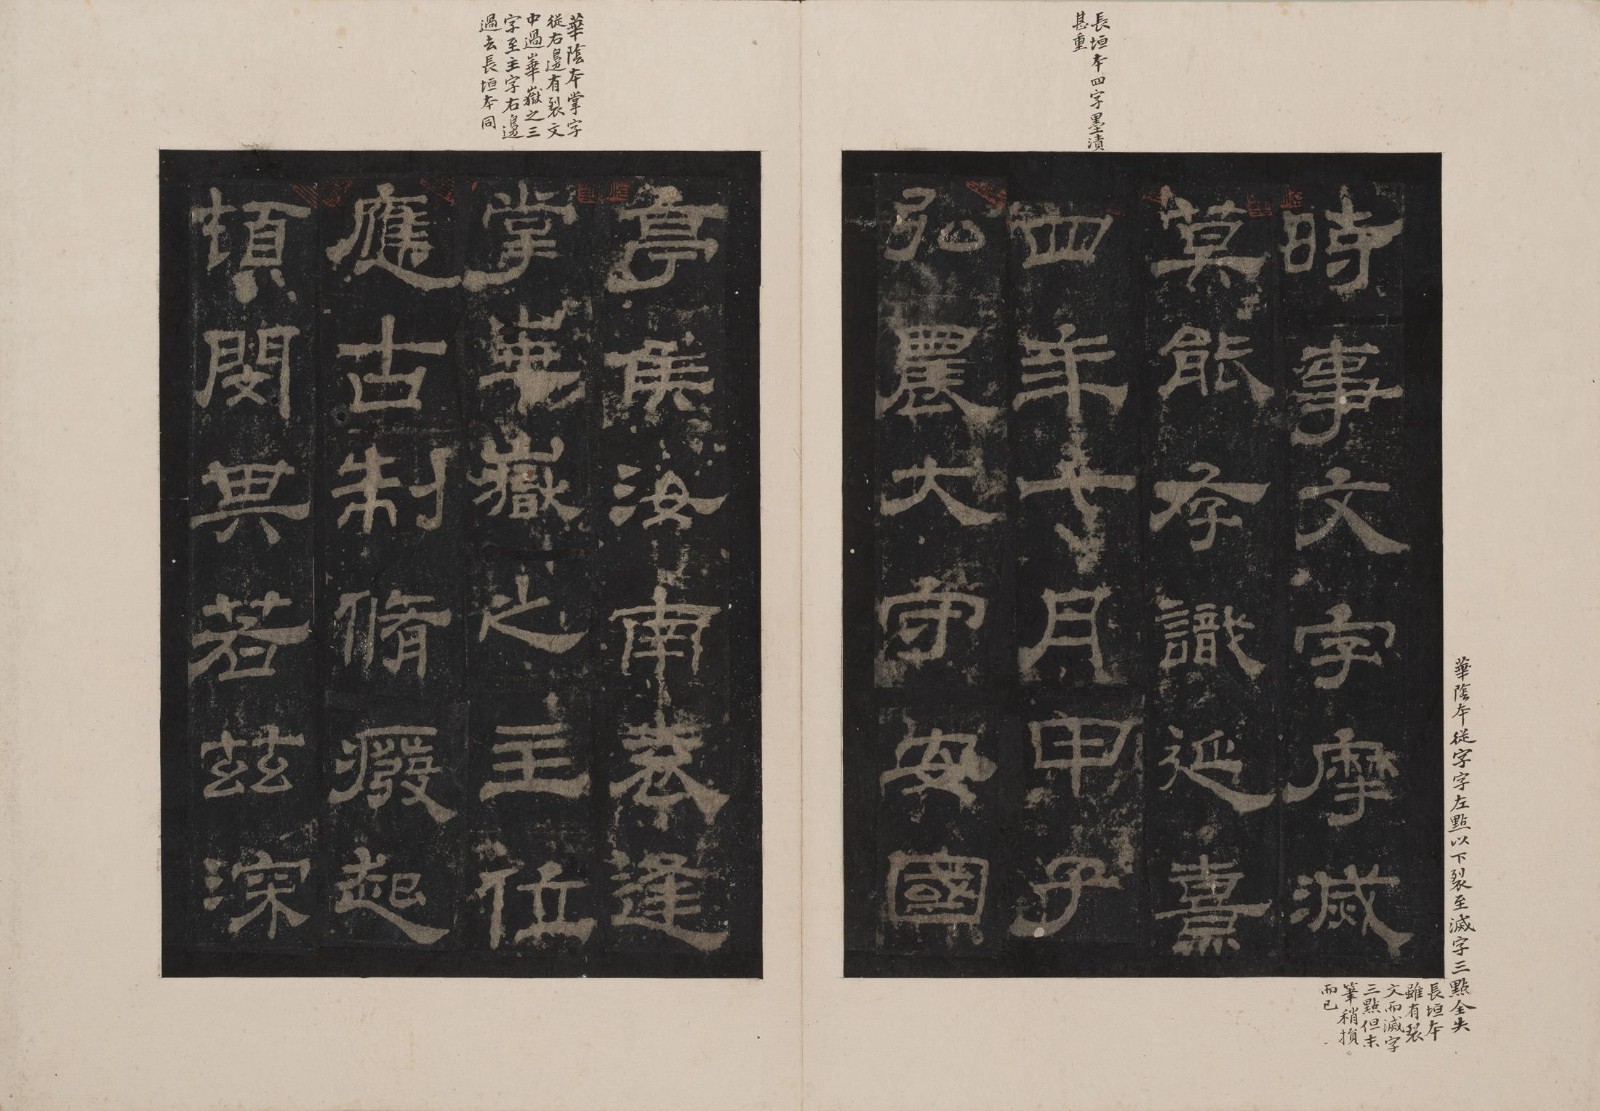 長垣本四字墨漬
甚重
時事文字摩滅
莫能存識延熹
四年七月甲子
弘農大守安國
華陰本從字字左點以下裂至滅字三點全失
長垣本
雖有裂
文而滅字
三點但末
筆稍損
而已
華陰本掌字
從右邊有裂文
中過華嶽之三
字至主字右邊
過去長垣本同
亭侯汝南袁逢
掌華嶽之主位
應古制脩癈起
頓閔其若茲深